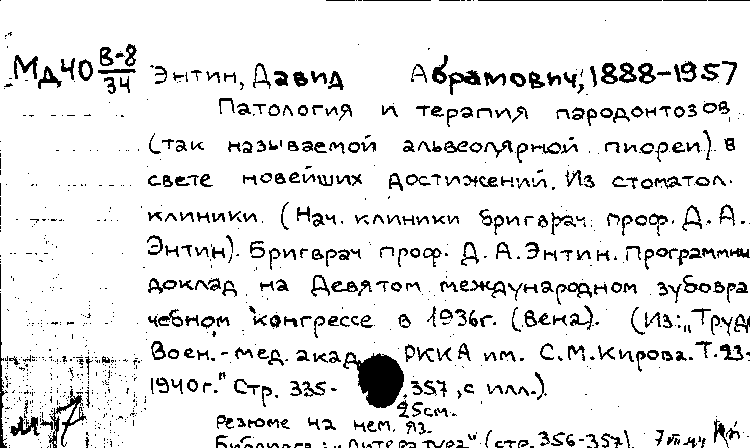 Мд40 В-8/34 Энтин, Давид Абрамович, 1888-1957
Патология и терапия пародонтозов
(так называемой альвеолярной пиореи) в
свете новейших достижений. Из стоматол.
клиники. (Нач. клиники бригврач проф. Д. А.
Энтин). Бригврач проф. Д. А. Энтин. Программны
доклад на Девятом международном зубовра
чебном конгрессе в 1936г. (Вена). (Из: „Труды
Воен.-мед. акад. РККА им. С.М.Кирова. Т.23.
1940г." Стр. 335-357, с илл.).
25см.
Резюме на нем. яз.
Библиогр.: „Литература" (стр. 356-357).